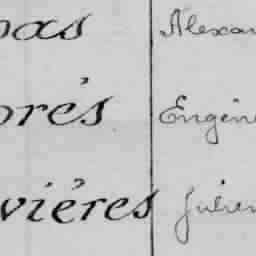 pas Alexan
prés Eugène
vières Julien